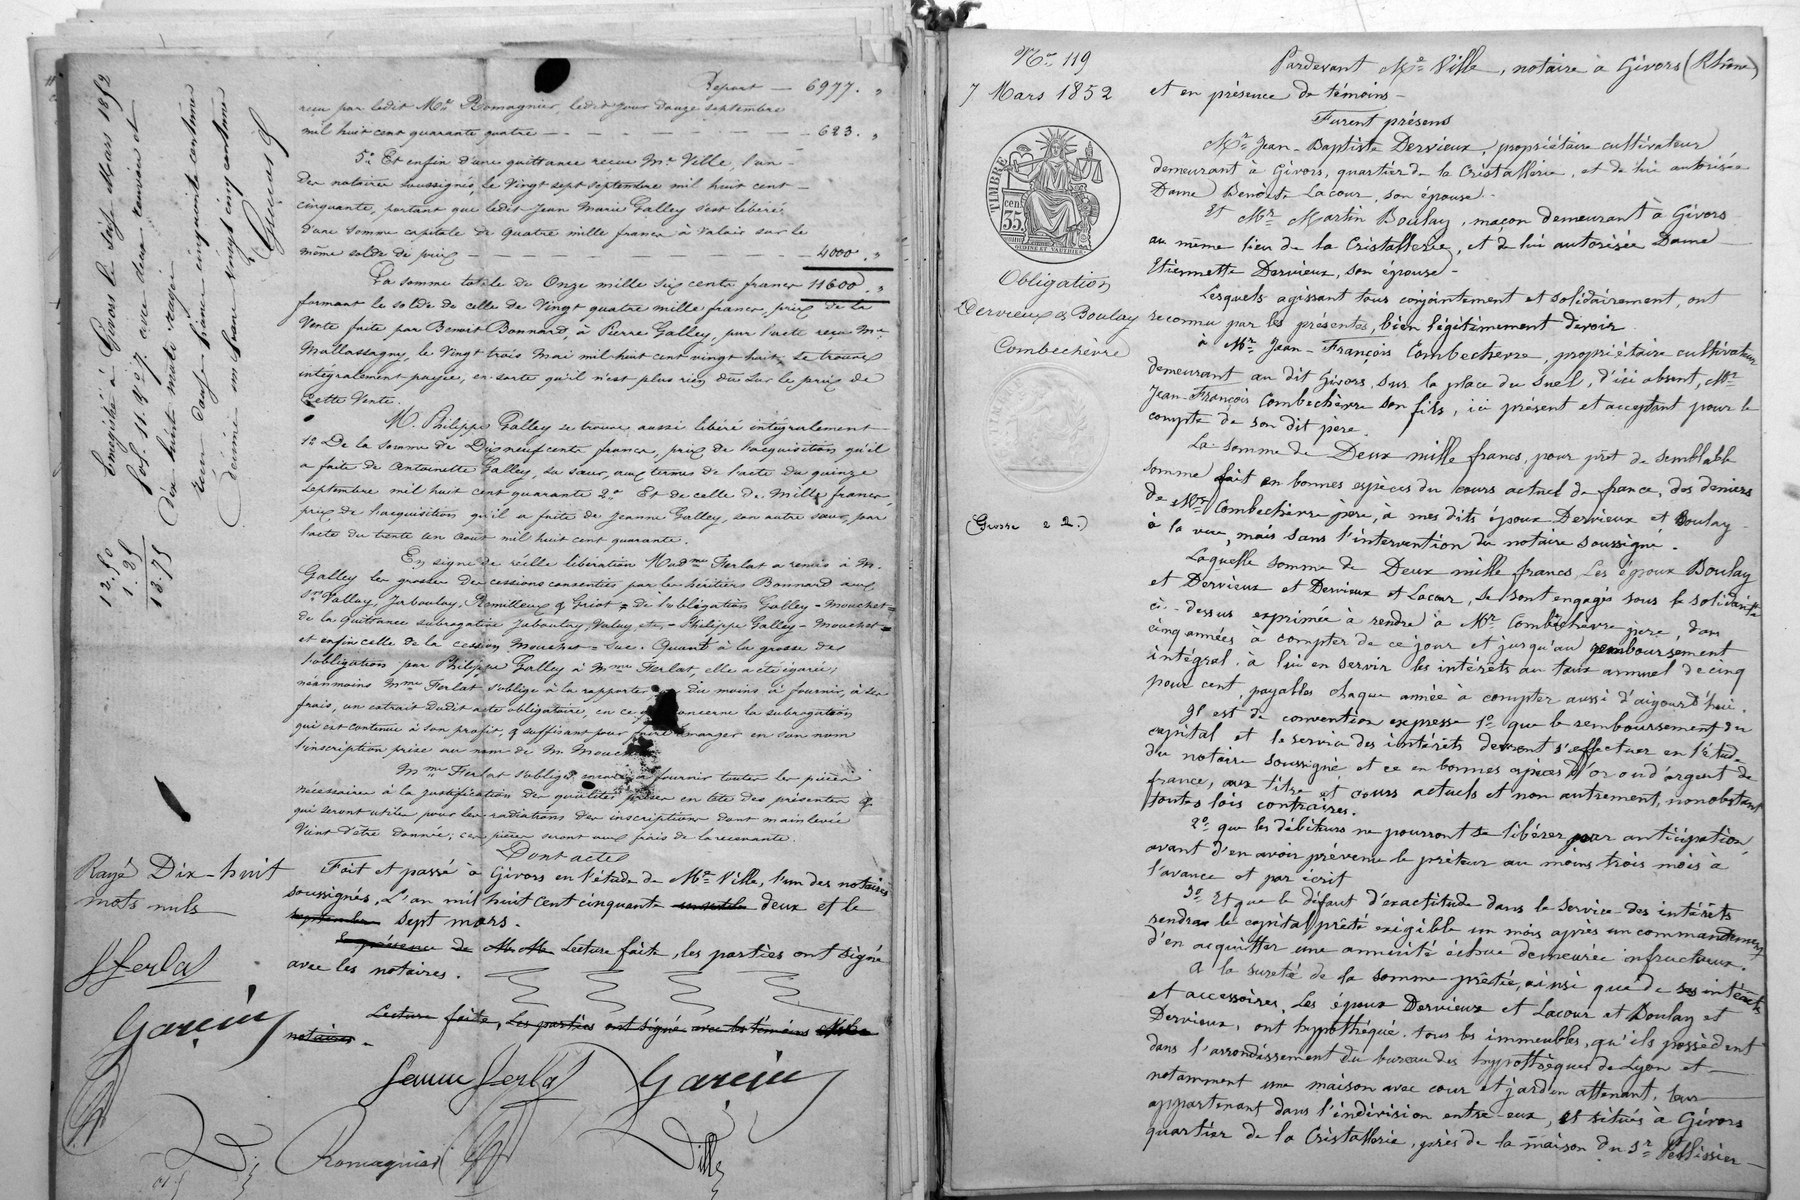 Report — 6977. "
reçu par ledit Me Romagnier, ledit jour douze septembre
mil huit cent quarante quatre — 623. "
5o Et enfin d'une quittance reçue Me Ville, l'un
des notaires soussignés, le Vingt sept septembre mil huit cent
cinquante, portant que ledit Jean Marie Galley s'est libéré
d'une somme capitale de quatre mille francs à valoir sur le
même solde de prix — 4000. "
La somme totale de Onze mille six cents francs 11600. "
formant le solde de celle de Vingt quatre mille francs, prix de la
Vente faite par Benoit Bonnard, à Pierre Galley, par l'acte reçu Me
Mallassagny, le Vingt trois Mai mil huit cent vingt huit, se trouve
intégralement payée, en sorte qu'il n'est plus rien dû sur le prix de
cette Vente.
M. Philippe Galley se trouve aussi libéré intégralement
1o De la somme de Dix neuf cents francs, prix de l'acquisition qu'il
a faite de Antoinette Galley, sa sœur, aux termes de l'acte du quinze
septembre mil huit cent quarante 2o Et de celle de Mille francs,
prix de l'acquisition qu'il a faite de Jeanne Galley, son autre sœur, par
l'acte du trente un août mil huit cent quarante.
En signe de réelle libération Madme Ferlat a remis à M.
Galley les grosses des cessions consenties par les héritiers Bonnard aux
Srs Vallay, Jaboulay, Remilleux & Griot = de l'obligation Galley = Mouchet =
de la quittance subrogative Jaboulay, Valay, etc = Philippe Galley = Mouchet =
et enfin celle de la cession Mouchet = Suc. Quant à la grosse de
l'obligation par Philippe Galley à Mme Ferlat, elle a été égarée;
néanmoins Mme Ferlat s'oblige à la rapporter ou du moins à fournir, à ses
frais, un extrait dudit acte obligatoire, en ce qui concerne la subrogation
qui est contenue à son profit, & suffisant pour faire émarger en son nom
l'inscription prise au nom de M. Mouchet
Mme Ferlat s'oblige encore à fournir toutes les pièces
nécessaires à la justification des qualités prises en tête des présentes &
qui seront utiles pour les radiations des inscriptions dont mainlevée
vient d'être donnée; ces pièces seront aux frais de la recevante.
Dont acte
Fait et passé à Givors en l'étude de Me Ville, l'un des notaires
soussignés, L'an mil huit cent cinquante deux et le
septembre sept mars.
En présence de MM. Lecture faite, les parties ont signé
avec les notaires.
Lecture faite, Les parties ont signé avec les témoins et les
notaires.
Rayé Dix-huit
mots nuls
fferlat
Garcin
femme ferlat Garcin
Romagnier Ville
Enregistré à Givors le seize Mars 1852
fol. 11. Ro c 7. avec deux renvois et
Dix huit mots rayés
reçu douze francs cinquante centimes
Décime un franc vingt cinq centimes
12.50
1.25
13.75
No 119
7 Mars 1852
TIMBRE
35 cen.
Obligation
Dervieux & Boulay
à
Combechèvre
(Grosse e 2.)
Pardevant Me Ville, notaire à Givors (Rhône)
et en présence de témoins —
Furent présens
Mr Jean-Baptiste Dervieux, propriétaire cultivateur
demeurant à Givors, quartier de la Cristallerie, et de lui autorisée
Dame Benoite Lacour, son épouse —
Et Mr Martin Boulay, maçon demeurant à Givors
au même lieu de la Cristallerie, et de lui autorisée Dame
Etiennette Dervieux, son épouse —
Lesquels agissant tous conjointement et solidairement, ont
reconnu par les présentes, bien légitimement devoir
à Mr Jean-François Combechevre, propriétaire cultivateur
demeurant au dit Givors, sur la place du Suel, d'ici absent, Mr
Jean-François Combechèvre son fils, ici présent et acceptant pour le
compte de son dit père.
La somme de Deux mille francs, pour prêt de semblable
somme fait en bonnes espèces du cours actuel de france, des deniers
de Mr Combechèvre père, à mes dits époux Dervieux et Boulay
à la vue, mais sans l'intervention du notaire soussigné.
Laquelle somme de Deux mille francs, Les époux Boulay
et Dervieux et Dervieux et Lacour, se sont engagés sous la solidarité
ci-dessus exprimée à rendre à Mr Combechèvre père, dans
cinq années à compter de ce jour et jusqu'au remboursement
intégral à lui en servir les intérêts au taux annuel de cinq
pour cent, payables chaque année à compter aussi d'aujourd'hui.
Il est de convention expresse 1o que le remboursement du
capital et le service des intérêts devront s'effectuer en l'étude
du notaire soussigné et ce en bonnes espèces d'or ou d'argent de
france, aux titre et cours actuels et non autrement, nonobstant
toutes lois contraires.
2o que les débiteurs ne pourront se libérer par anticipation
avant d'en avoir prévenu le prêteur au moins trois mois à
l'avance et par écrit
3o Et que le défaut d'exactitude dans le service des intérêts
rendra le capital prêté exigible un mois après un commandement
d'en acquitter une annuité échue demeurée infructueux.
A la sureté de la somme prêtée, ainsi que de ses intérêts
et accessoires, Les époux Dervieux et Lacour et Boulay et
Dervieux, ont hypothéqué tous les immeubles, qu'ils possèdent
dans l'arrondissement du bureau des hypothèques de Lyon et
notamment une maison avec cour et jardin attenant, leur
appartenant dans l'indivision entre eux, et situés à Givors
quartier de la Cristallerie, près de la maison du Sr Pellissier —